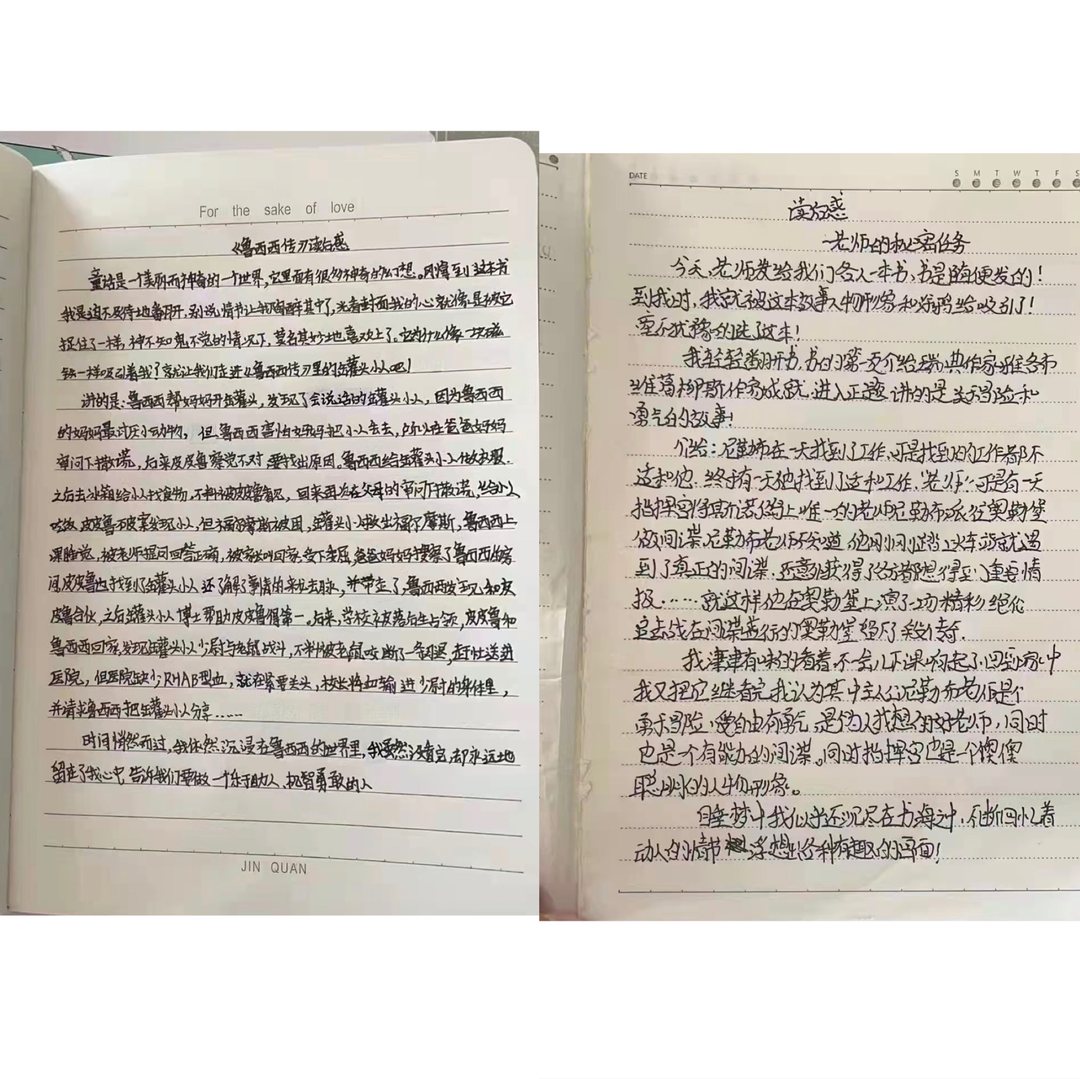 For the sake of love
《鲁西西传》读后感
童话是一个美丽而神奇的一个世界，它里面有很多神奇的幻想。刚拿到这本书
我是迫不及待地翻开，别说情节让我陶醉其中了，光看封面我的心就像是被它
抓住了一样，神不知鬼不觉的情况下，莫名其妙地喜欢上了。它为什么像一块磁
铁一样吸引着我？就让我们走进《鲁西西传》里的罐头小人吧！
讲的是：鲁西西帮妈妈开罐头，发现了会说话的罐头小人，因为鲁西西
的妈妈最讨厌小动物，但鲁西西害怕妈妈把小人丢去，所以在爸爸妈妈
审问下撒谎，后来皮皮鲁察觉不对，要找出原因，鲁西西给罐头小人做衣服.
之后去冰箱给小人找食物，不料被皮皮鲁看见，回来再次在父母的审问下撒谎，给小人
吃饭，皮皮鲁不出发现小人，但福尔摩斯被困，罐头小人救出福尔摩斯，鲁西西上
课睡觉，被老师提问回答正确，被家叫回家，受了委屈，爸爸妈妈搜察了鲁西西的房
间，皮皮鲁也找到了罐头小人还了解了事情的来龙去脉，并带走了，鲁西西发现，和皮
皮鲁合伙，之后罐头小人博士帮助皮皮鲁得第一。后来，学校被落后生占领，皮皮鲁和
鲁西西回家，发现罐头小人少尉与老鼠战斗，不料被老鼠咬断了一条腿，赶忙送进
医院，但医院缺少RHAB型血，就在紧要关头，校长将血输进少尉的身体里，
并请求鲁西西把罐头小人分享……
时间悄然而过，我依然沉浸在鲁西西的世界里，我虽然没看完，却永远地
留在了我心中，告诉我们要做一个乐于助人、机智勇敢的人
JIN QUAN
DATE
S M T W T F S
读后感
—老师的秘密任务
今天，老师发给我们各人一本书，书是随便发的！
到我时，我就被这本故事人物形象和好词给吸引了！
毫不犹豫的选了这本！
我轻轻翻开书，书的第一页介绍瑞典作家
作家成就，进入正题，讲的是关于冒险和
勇气的故事！
介绍：尼勒布在一天找到了工作，可是找到的工作都不
适和他，终于有一天他找到了适和工作，老师，可是有一天
指挥官将其沉着稳上唯一的老师尼勒布派往奥勒堡
做间谍，尼勒布老师不知道，他刚刚踏上火车站就遇
到了真正的间谍，还意外获得了份谁都想得到重要情
报……就这样他在奥勒堡上演了一场精彩绝伦
追击战在间谍盛行的奥勒堡留下了段传奇.
我津津有味的看着，不一会儿下课响起了，回到家中
我又把它继看完，我认为其中主人公尼勒布老师是个
勇于冒险、爱自由有勇气，是令人我想到的好老师，同时
也是个有能力的间谍。同时指挥官也是一个
聪明的人物形象。
睡梦中我似乎还沉浸在书海之中，不断回忆着
动人的情节，浮想出各种有趣的画面！